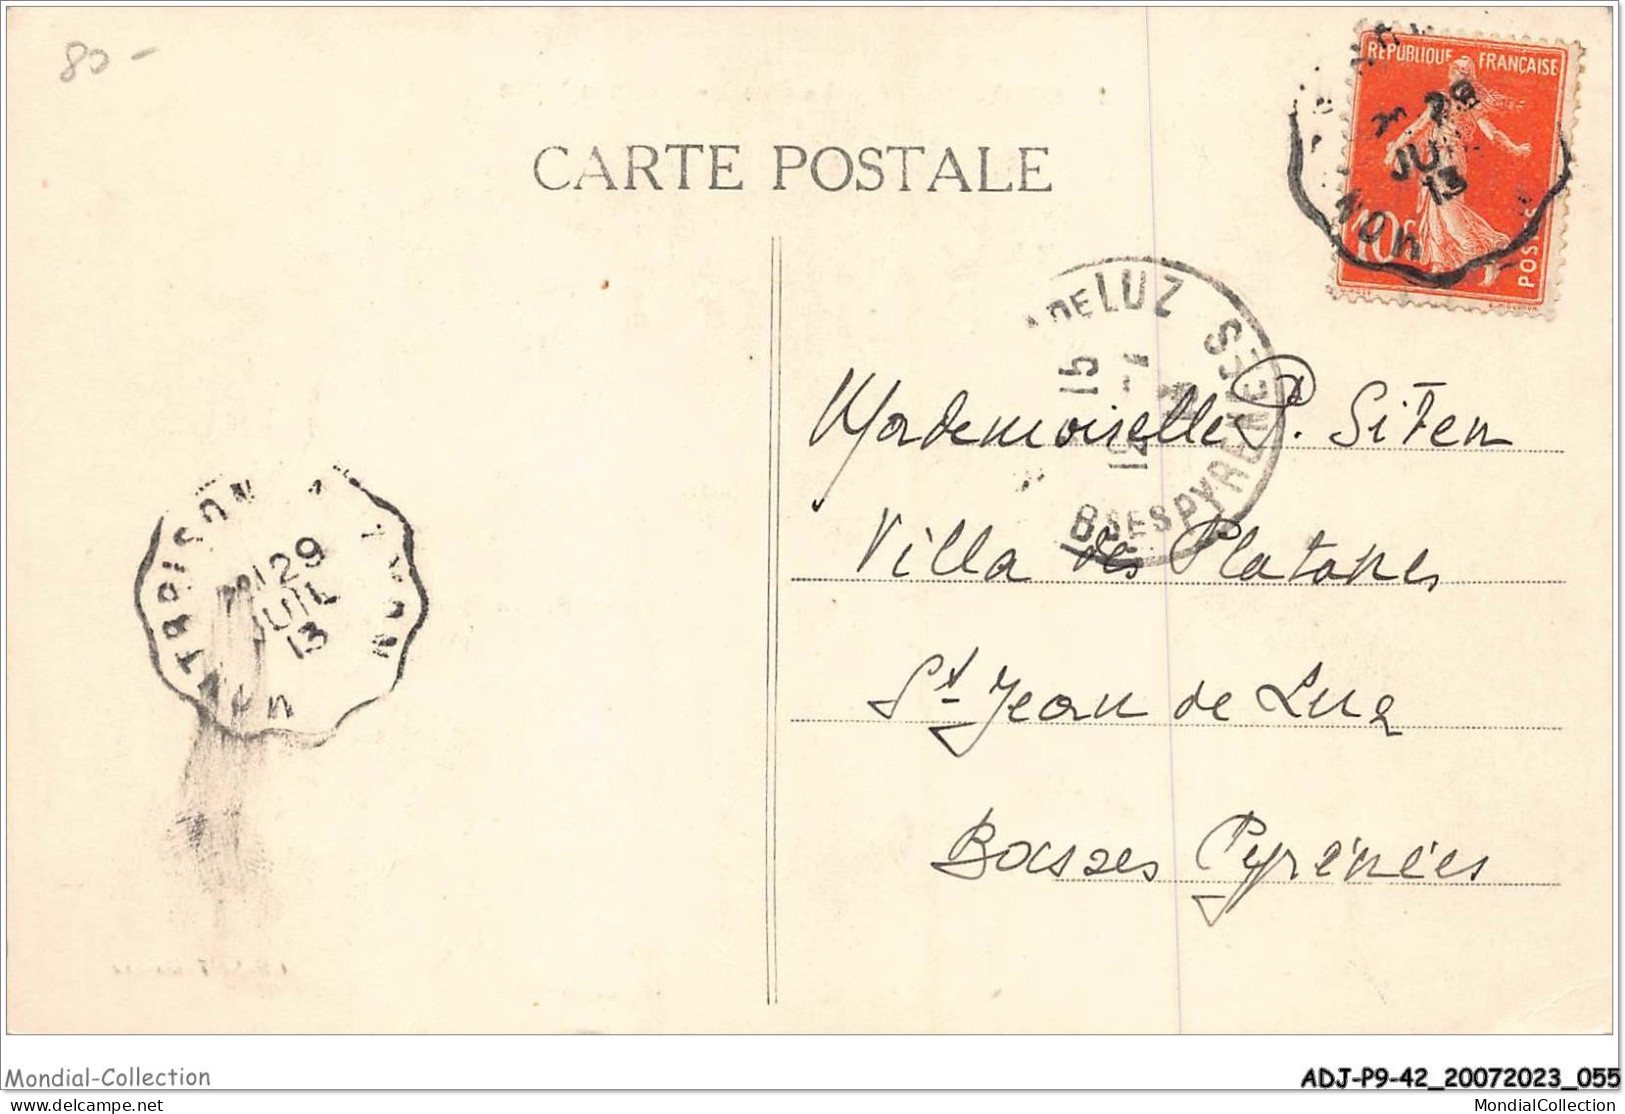 80-
REPUBLIQUE FRANÇAISE
29
JUIL
13
10c
POSTES
CARTE POSTALE
DE LUZ
BSES PYRENEES
15
Mademoiselle P. Sifen
Villa des Platanes
St Jean de Luz
Basses Pyrénées
MONTBRISON
29
JUIL
13
Mondial-Collection
ADJ-P9-42_20072023_055
www.delcampe.net
MondialCollection